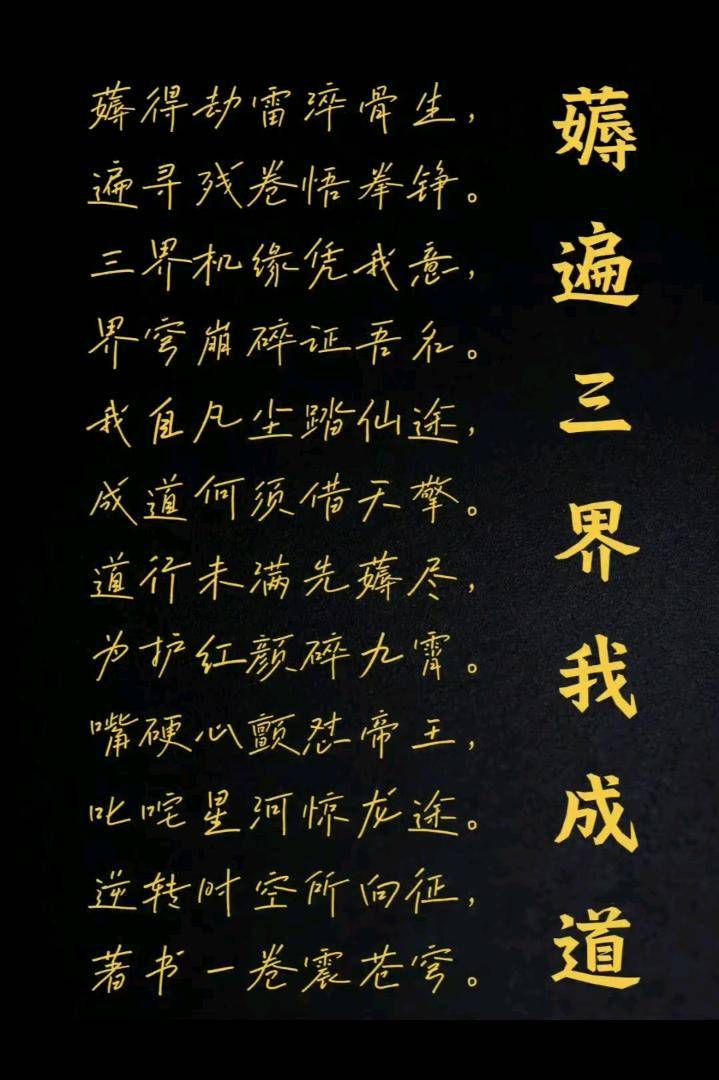 薅遍三界我成道
薅得劫雷淬骨生，
遍寻残卷悟拳铮。
三界机缘凭我意，
界穹崩碎证吾名。
我自凡尘踏仙途，
成道何须借天擎。
道行未满先薅尽，
为护红颜碎九霄。
嘴硬心颤怼帝王，
叱咤星河惊龙途。
逆转时空所向征，
著书一卷震苍穹。